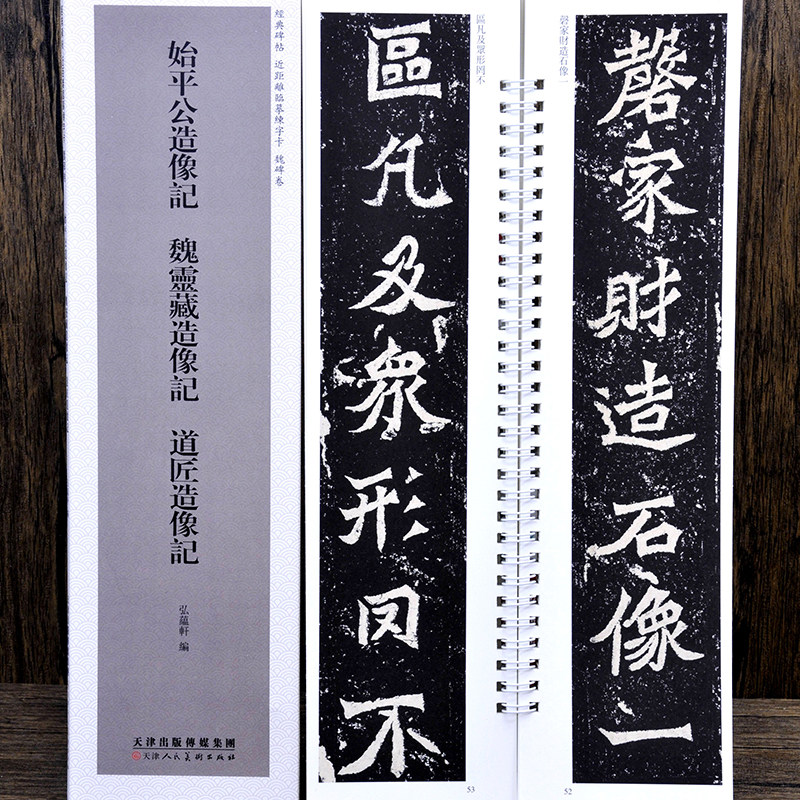 經典碑帖 近距離臨摹練字卡 魏碑卷
始平公造像記 魏靈藏造像記 道匠造像記
弘蘊軒 編
天津出版傳媒集團
天津人民美術出版社
磬家財造石像一
磬家財造石像一
52
區凡及眾形罔不
區凡及眾形罔不
53